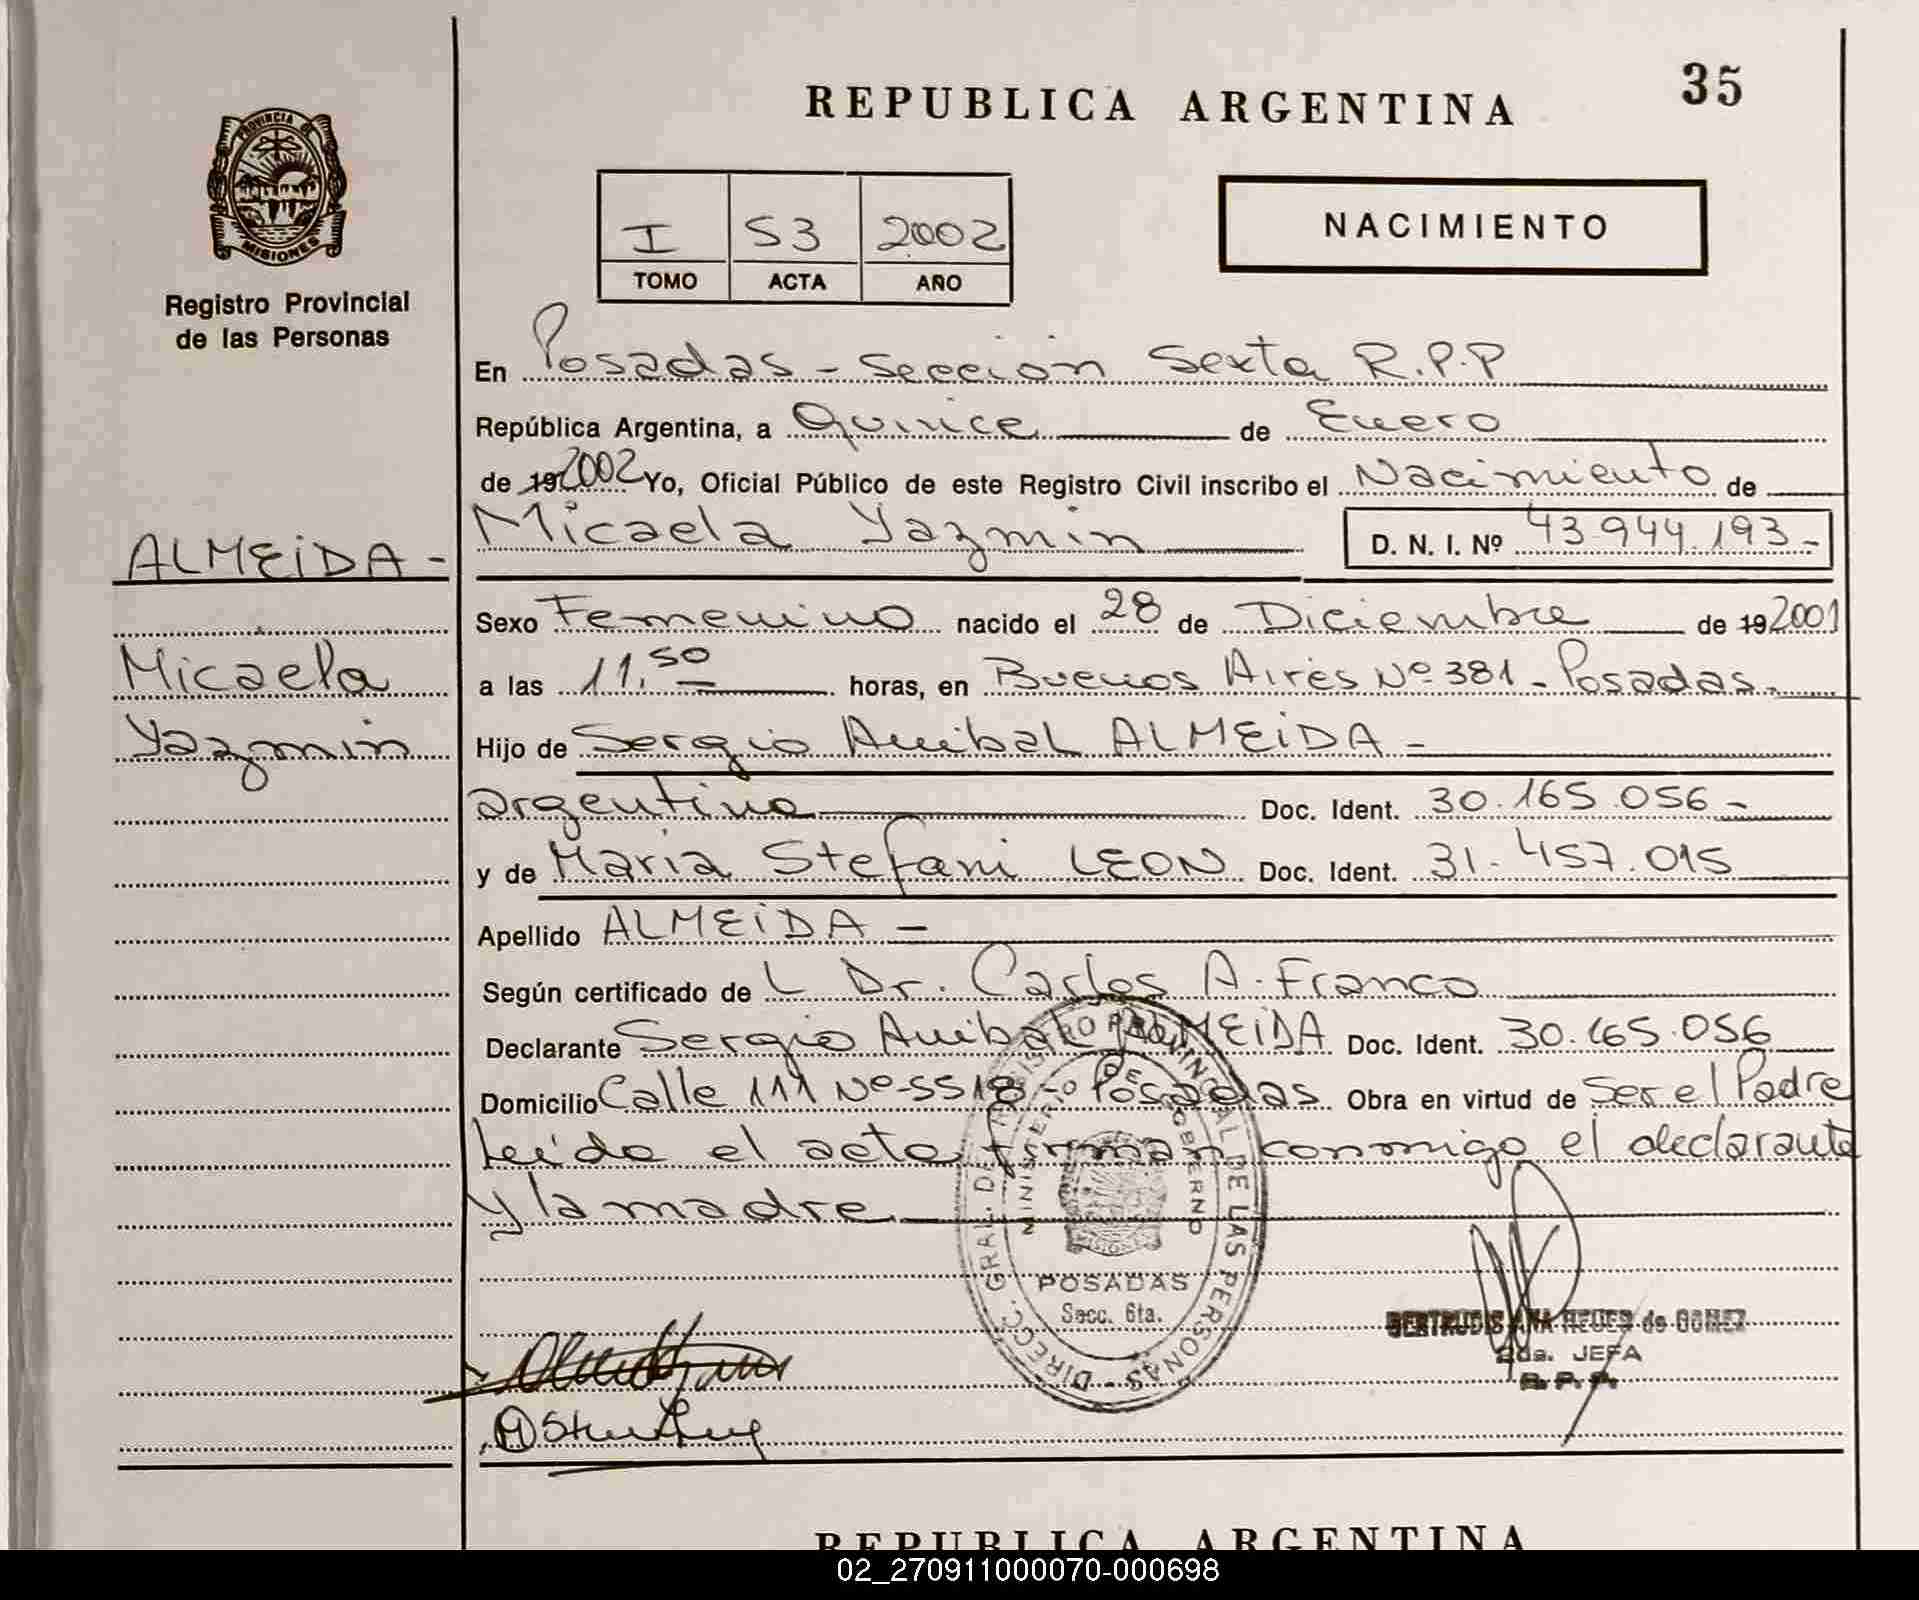 35
REPUBLICA ARGENTINA
PROVINCIA DE
MISIONES
Registro Provincial
de las Personas
I 53 2002
TOMO ACTA AÑO
NACIMIENTO
En Posadas - Seccion Sexta R.P.P
República Argentina, a Quince de Enero
de 19 2002 Yo, Oficial Público de este Registro Civil inscribo el Nacimiento de
Micaela Yazmin D. N. I. Nº 43.944.193-
ALMEIDA -
Micaela
Yazmin
Sexo Femenino nacido el 28 de Diciembre de 19 2001
a las 11,50 horas, en Buenos Aires Nº 381 - Posadas.
Hijo de Sergio Anibal ALMEIDA -
argentino Doc. Ident. 30.165.056-
y de Maria Stefani LEON Doc. Ident. 31.457.015
Apellido ALMEIDA -
Según certificado de L Dr. Carlos A. Franco
Declarante Sergio Anibal ALMEIDA Doc. Ident. 30.165.056
Domicilio Calle 111 Nº 5518 - Posadas Obra en virtud de Ser el Padre
Leida el acta, firman conmigo el declarante
y la madre
DIRECC. GRAL. DE REGISTRO PROVINCIAL DE LAS PERSONAS -
MINISTERIO DE GOBIERNO
MISIONES
POSADAS
Secc. 6ta.
GERTRUDIS ANA de GOMEZ
2da. JEFA
R. P. P.
REPUBLICA ARGENTINA
02_270911000070-000698